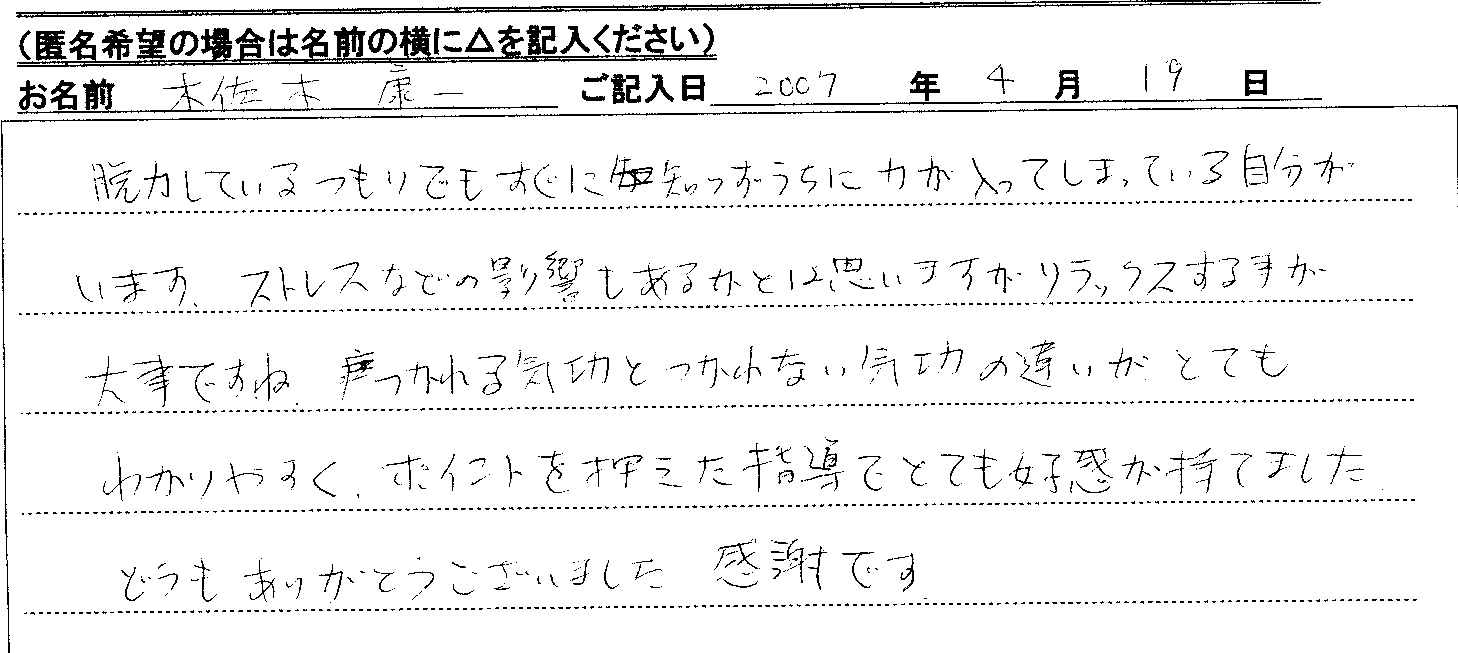 (匿名希望の場合は名前の横に△を記入ください)
お名前 木佐木 康一 ご記入日 2007 年 4 月 19 日
脱力しているつもりでもすぐに知らずうちに力が入ってしまっている自分が
います。ストレスなどの影響もあるかとは思いますがリラックスする事が
大事ですね。つかれる気功とつかれない気功の違いがとても
わかりやすく、ポイントを押えた指導でとても好感が持てました。
どうもありがとうございました 感謝です